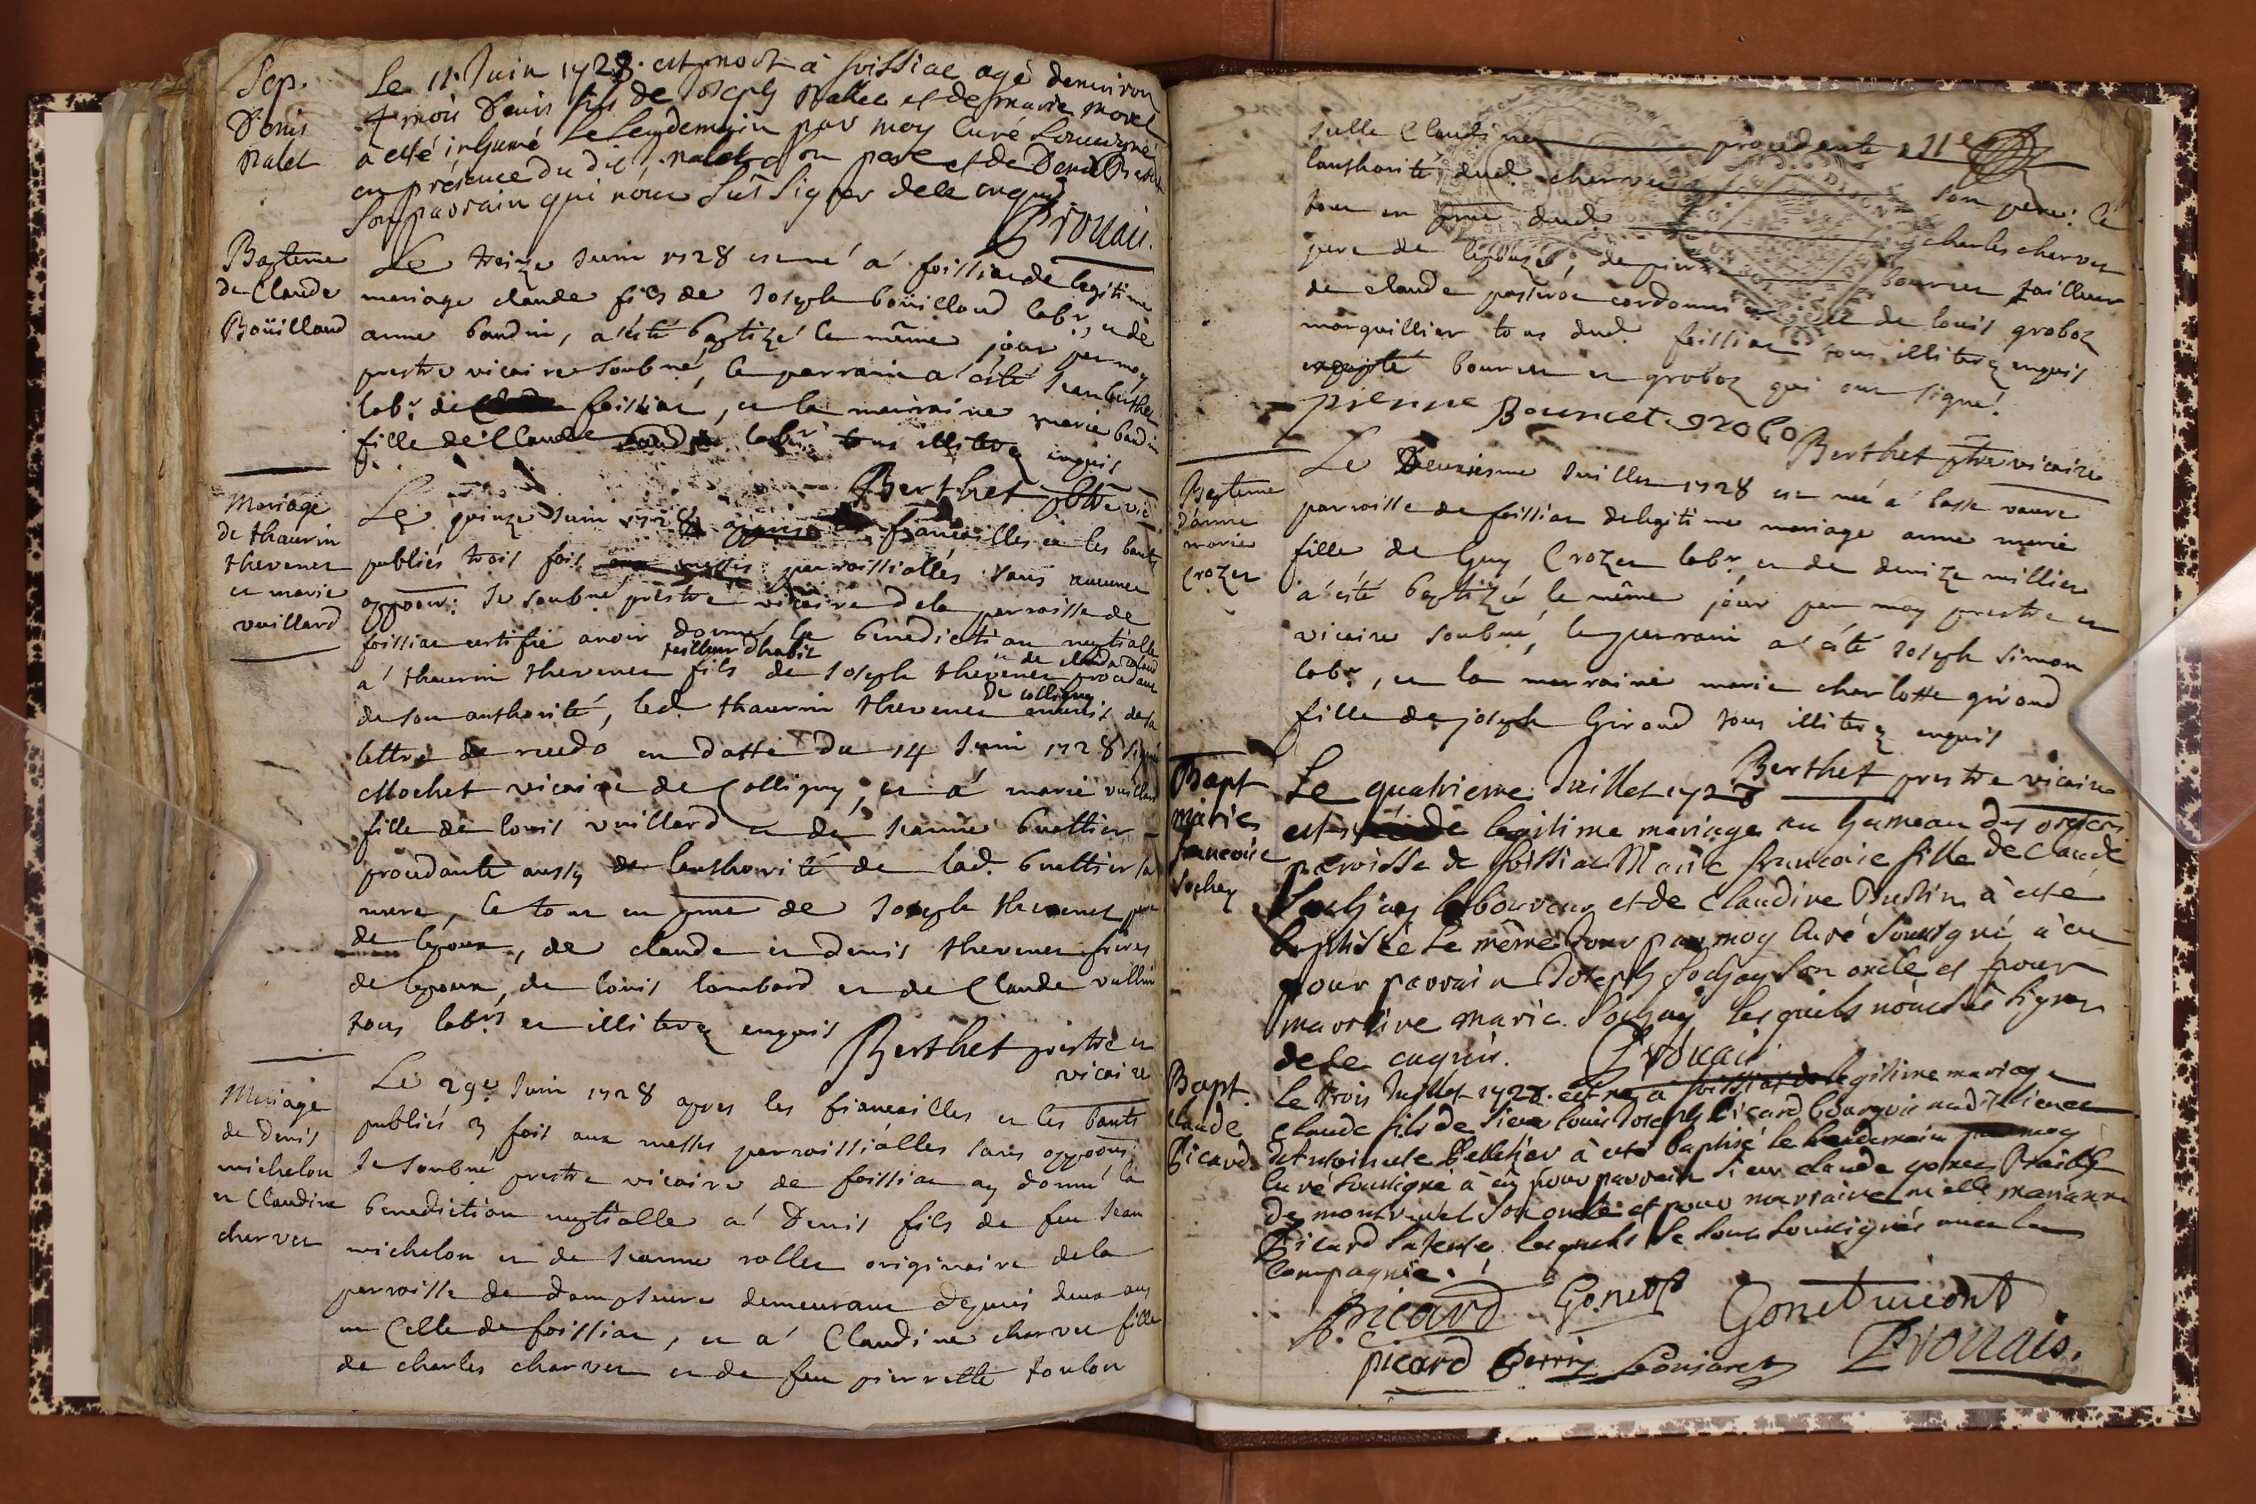 Sep.
Denis
Nalet
Le 11 Juin 1728. est mort à foissiac agé denviron
4 mois Denis fils de Joseph Nallet et de marie morel
a esté inhumé le lendemain par moy Curé Soussigné
en présence du dit nalet son pere et de Denis
Son parrain qui nónt Sût Signer de ce enquis
Drouais.
Bapteme
de Claude
Boüilland
Le treize Juin 1728 est né á foissiac de legitime
mariage claude fils de Joseph boüilloud labr, et de
anne baudin, a été baptizé le même jour par moy
prestre vicaire soubné, le parrain a été Jean berthet
labr de foissiac, et la marraine marie baudin
fille de Claude labr tous illiterez enquis
Berthet pbtre vic
Mariage
de thaurin
thevenet
et marie
vuillard
Le quinze Juin 1728 fiancailles et les bants
publiés trois fois parroissialles sans aucunes
opposõn: Je soubné prestre vicaire de la parroisse de
foissiac certifie avoir donné la benediction nuptialle
tailleur dhabit
á thaurin thevenet fils de Joseph thevenet procedant
de son authorité, led. thaurin thevenet de colligny
lettre de recedo en datte du 14 Juin 1728 signé
Mochet vicaire de Colligny, et á marie vuillard
fille de louis vuillard et de Jeanne buettier
procedante aussy de lauthorité de lad. buettier sa
mere, le tout en pnce de Joseph thevenet pere
de lepoux, de claude et denis thevenet freres
de lepoux, de louis lombard et de Claude vullin
tous labrs et illiterez enquis
Berthet prestre et
vicaire
Mariage
de denis
michelon
et Claudine
charvet
Le 29e Juin 1728 apres les fiancailles et les bants
publiés 3 fois aux messes parroissiálles sans opposõn
Je soubné prestre vicaire de foissiac ay donné la
benediction nuptialle á Denis fils de feu Jean
michelon et de Jeanne rollet originaire de la
parroisse de dompsure demeurant depuis deux ans
en Celle de foissiac, et a' Claudine charvet fille
de charles charvet et de feu pierrette toulon
Claudine procedante
lauthorité dud. charvet son pere: le
tout en pnce dud. charles charvet
pere de lepouse, de pierre bourcet tailleur
de claude cordonnier et de louis groboz
marguillier tous dud. foissiac tous illiterez enquis
excepté bourcet et groboz qui ont signé.
pierre Bourcet grobo
Berthet ptre vicaire
Bapteme
danne
marie
Crozet
Le Deuxiesme Juillet 1728 est née a' basse vavre
parroisse de foissiac de legitime mariage anne marie
fille de Guy Crozet labr et de denize millier
a' été baptizée le même jour par moy prestre et
vicaire soubné, le parrain a' été Joseph simon
labr, et la marraine marie charlotte giroud
fille de joseph Giroud tous illiterez enquis
Berthet prestre vicaire
Bapt
maries
francoise
Sochay
Le quatrieme Juillet 1728
est née de legitime mariage au hameau des
paroisse de foissiac Marie francoise fille de Claude
Sochay laboureur et de Claudine Bustin à esté
baptisée le même Jour par moy Curé Soussigné à eu
pour parrain Joseph Sochay son oncle et pour
marraine marie Sochay lesquels nónt Sû signer
de ce enquis.
Drouais
Bapt.
Claude
Picard
Le trois Juillet 1728. est né à foissiac de legitime mariage
Claude fils de Sieur louis Joseph Picard bourgois
Antoinete Pelletier à esté baptisé le lendemain par moy
Curé Soussigné à eû pour parrain Sieur claude gonet
de montrevel Son oncle et pour marraine melle marianne
Picard Sa tente lesquels Se Sont Soussignés avec la
Compagnie.
Picard Gonet
picard Perrin
Drouais.